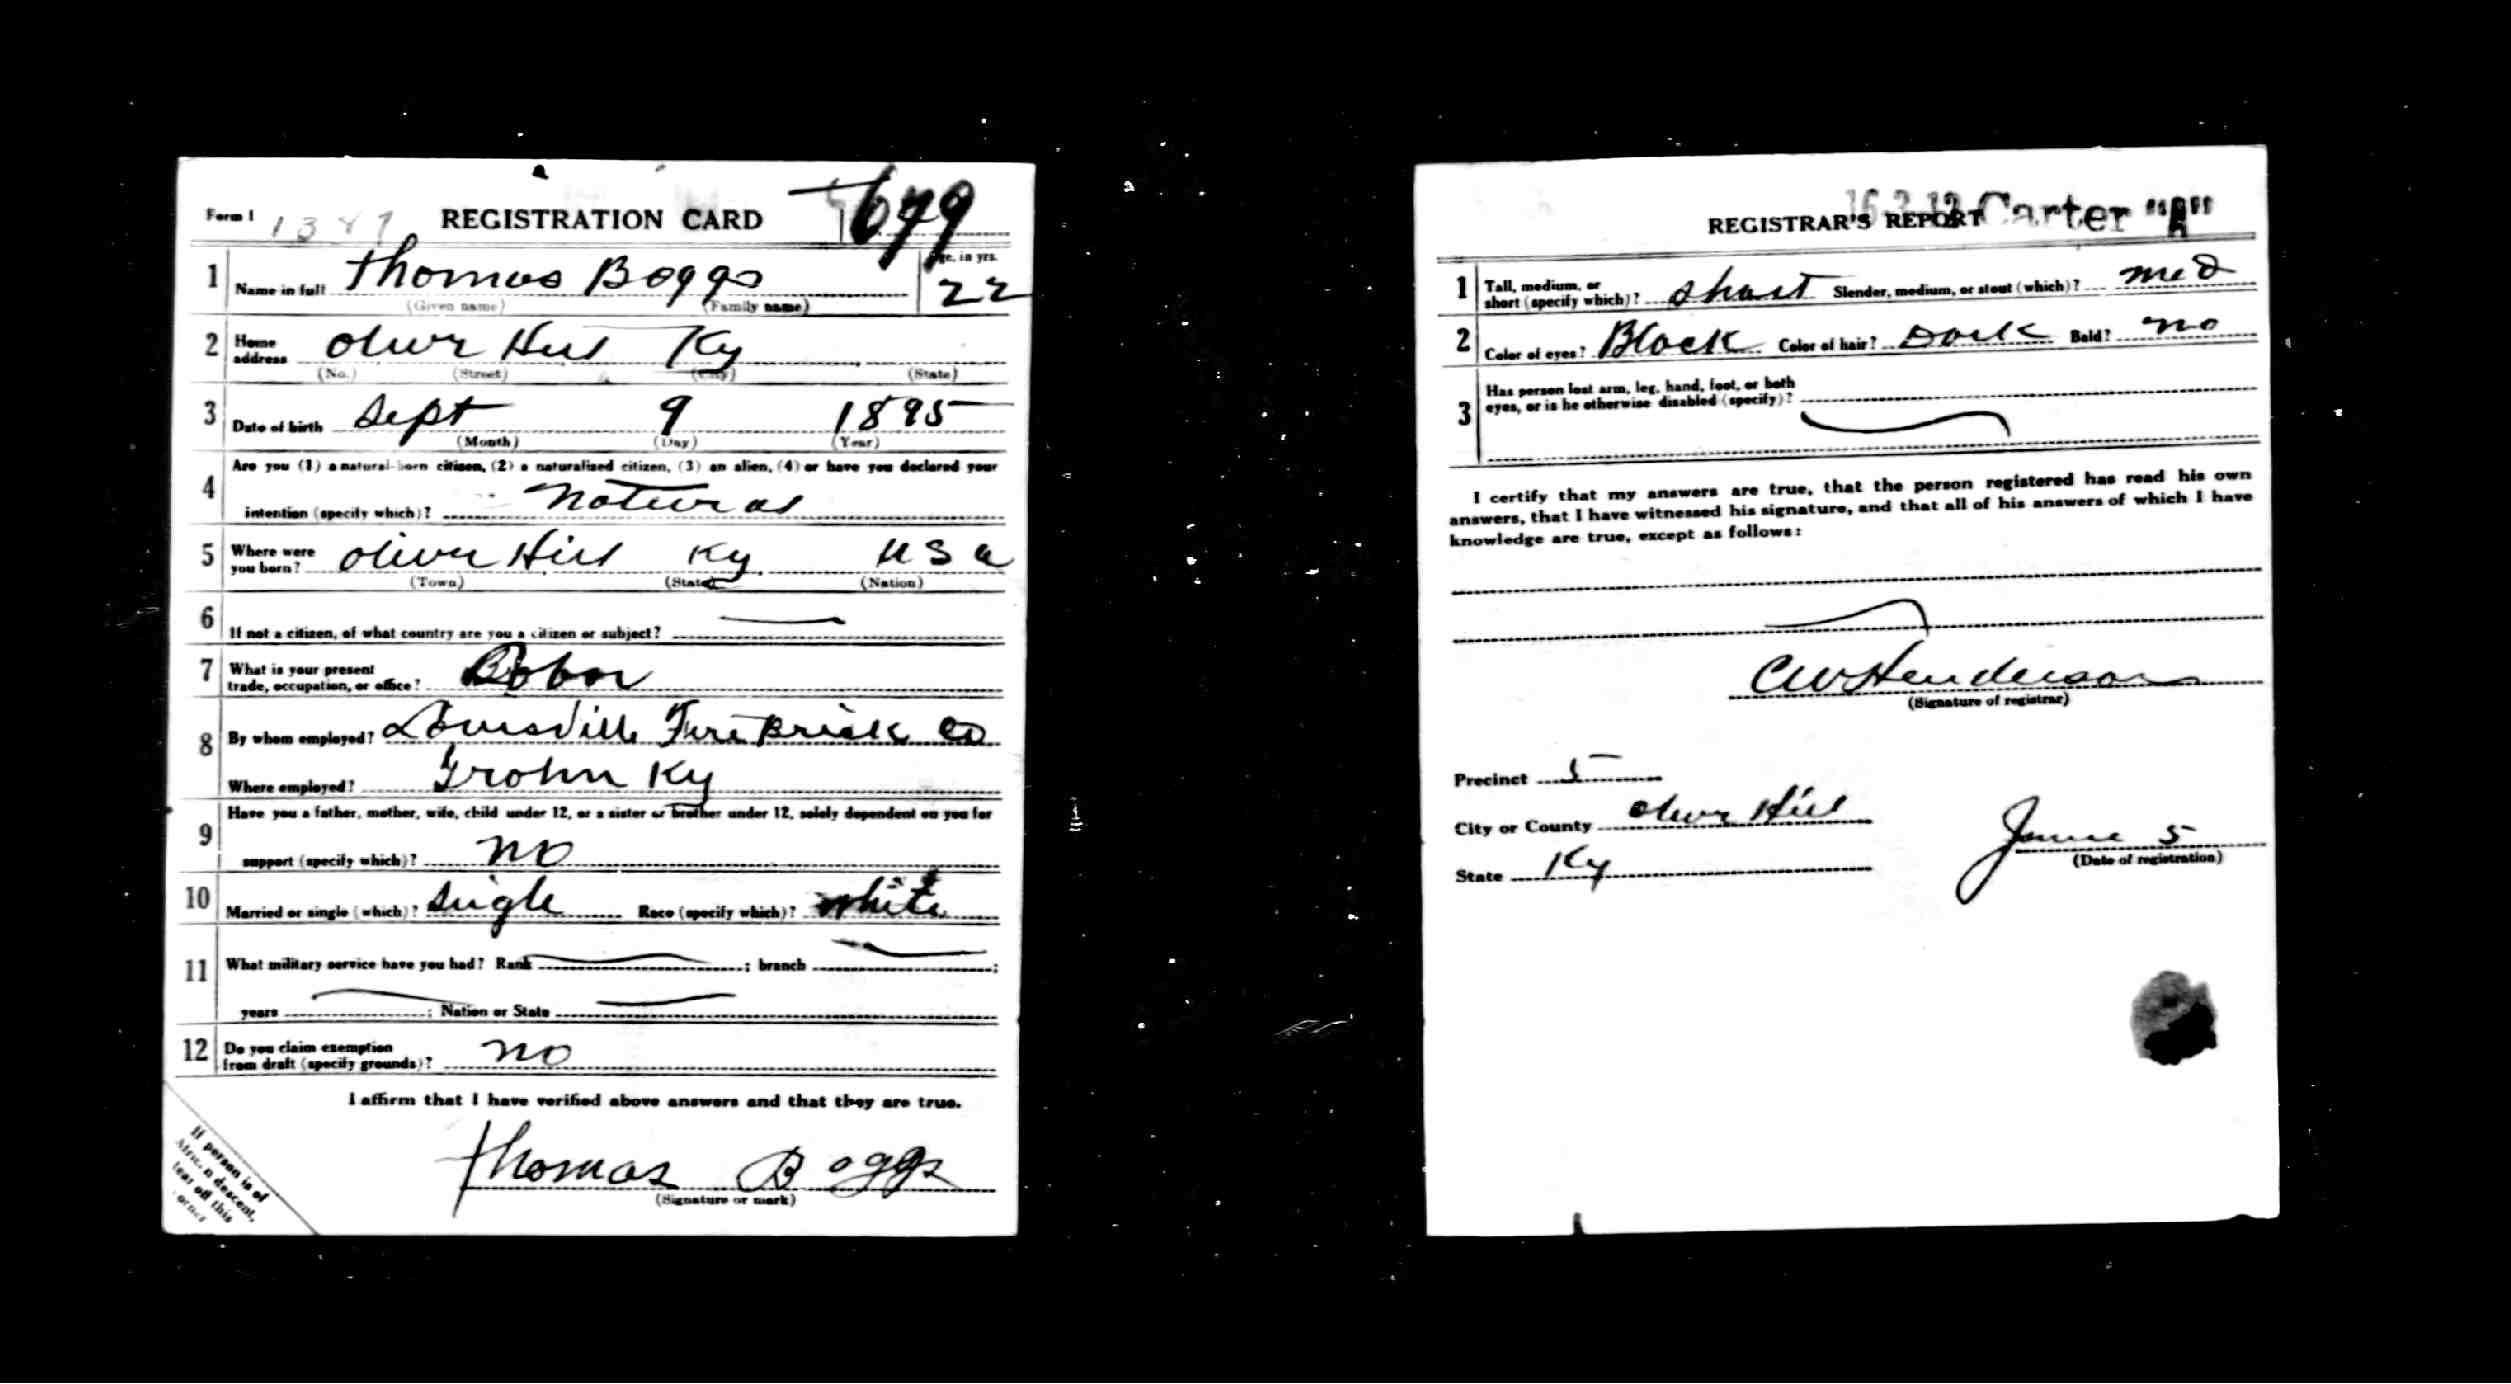 Form 1 1387 REGISTRATION CARD 679
1 Name in full Thomas Boggs Age, in yrs. 22
(Given name) (Family name)
2 Home address Oliver Hill Ky
(No.) (Street) (City) (State)
3 Date of birth Sept 9 1895
(Month) (Day) (Year)
Are you (1) a natural-born citizen, (2) a naturalized citizen, (3) an alien, (4) or have you declared your
4 intention (specify which)? Natural
5 Where were you born? Oliver Hill Ky U S a
(Town) (State) (Nation)
6 If not a citizen, of what country are you a citizen or subject?
7 What is your present trade, occupation, or office?
8 By whom employed? Louisville Fire Brick Co
Where employed? Grohn Ky
Have you a father, mother, wife, child under 12, or a sister or brother under 12, solely dependent on you for
9 support (specify which)? no
10 Married or single (which)? Single Race (specify which)? White
11 What military service have you had? Rank ; branch ;
years ; Nation or State
12 Do you claim exemption from draft (specify grounds)? no
I affirm that I have verified above answers and that they are true.
Thomas Boggs
(Signature or mark)
If person is of
African descent,
tear off this
corner
REGISTRAR'S REPORT Carter "A"
1 Tall, medium, or short (specify which)? Short Slender, medium, or stout (which)? med
2 Color of eyes? Black Color of hair? Dark Bald? no
Has person lost arm, leg, hand, foot, or both
3 eyes, or is he otherwise disabled (specify)?
I certify that my answers are true, that the person registered has read his own
answers, that I have witnessed his signature, and that all of his answers of which I have
knowledge are true, except as follows:
CW Henderson
(Signature of registrar)
Precinct 5
City or County Oliver Hill
State Ky
June 5
(Date of registration)